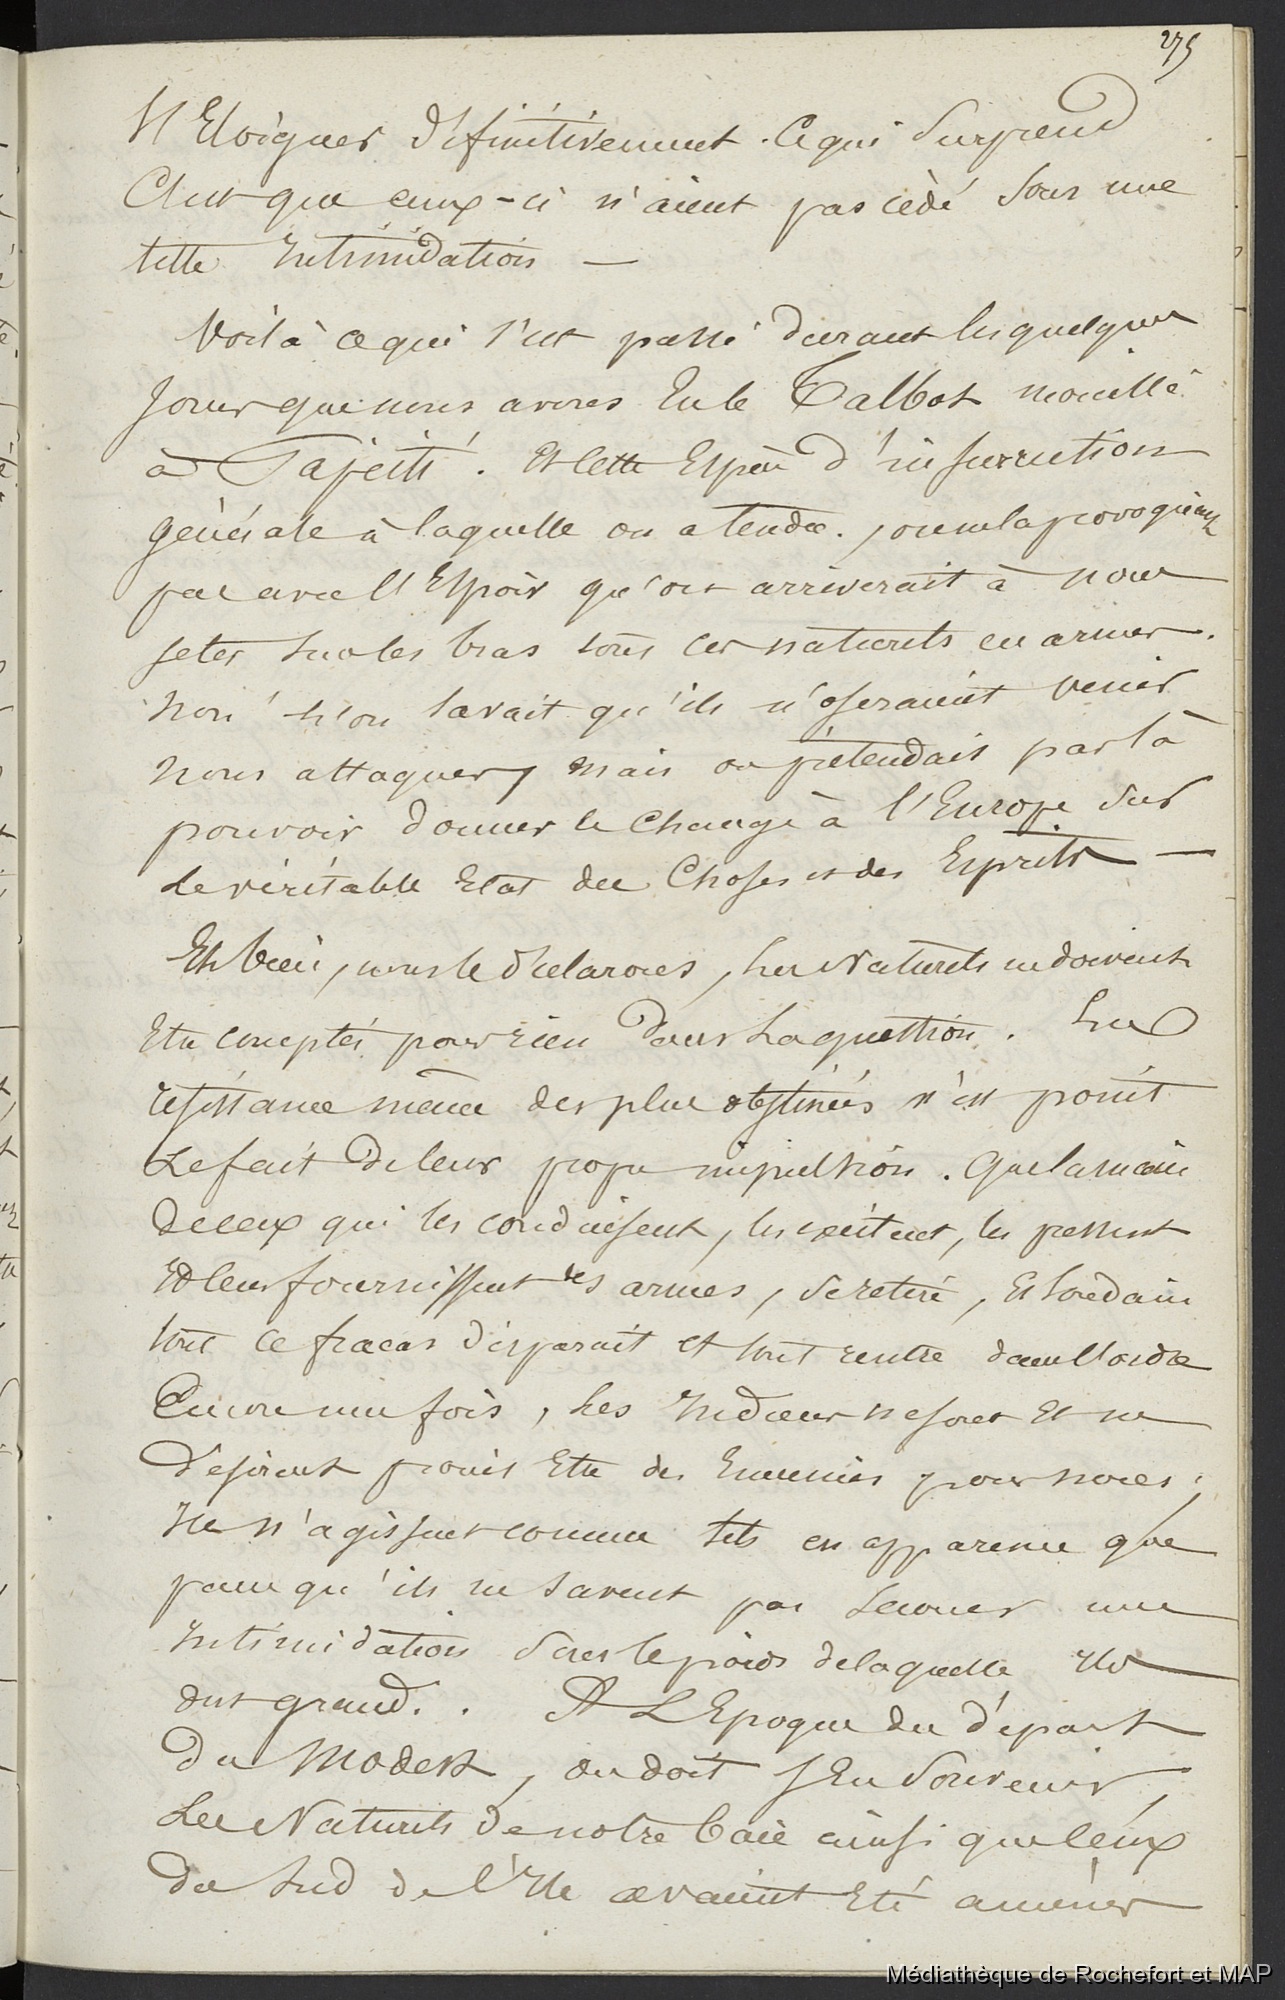 275
s'Eloigner définitivement. Ce qui surprend
C'est que ceux-ci n'aient pas cèdé sous une
telle intimidation —
Voilà ce qui s'est passé durant les quelques
jours que nous avons Eu le Talbot mouillé
à Tajeiti. Et cette Espèce d'insurrection
générale à laquelle on a tendu.
par avec l'Espoir qu'on arriverait à nous
jeter sur les bras tous ces naturels en armes.
Non! n'on savait qu'ils n'oseraient venir
nous attaquer, mais on prétendait par là
pouvoir donner le Change à l'Europe sur
le véritable Etat des Choses et des Esprits —
Eh bien, nous le déclarons, les Naturels ne doivent
Etre comptés pour rien dans la question. La
résistance même des plus obstinés n'est point
Le fait de leur propre impulsion. Que la main
de ceux qui les conduisent, les excitent, les
Et leur fournissent des armes, se retire, Et soudain
tout ce fracas disparait et tout rentre dans l'ordre
Encore une fois, les Indiens ne sont Et ne
désirent point Etre des Ennemis pour nous;
Ils n'agissent comme tels en apparence que
parcequ'ils ne savent pas secouer une
Intimidation sous le poids de laquelle Ils
ont grandi. . A L'Epoque du départ
du Modest, on doit s'En Souvenir,
Les Naturels de notre baie ainsi que ceux
du Sud de l'Ile avaient Eté amenés
Médiathèque de Rochefort et MAP